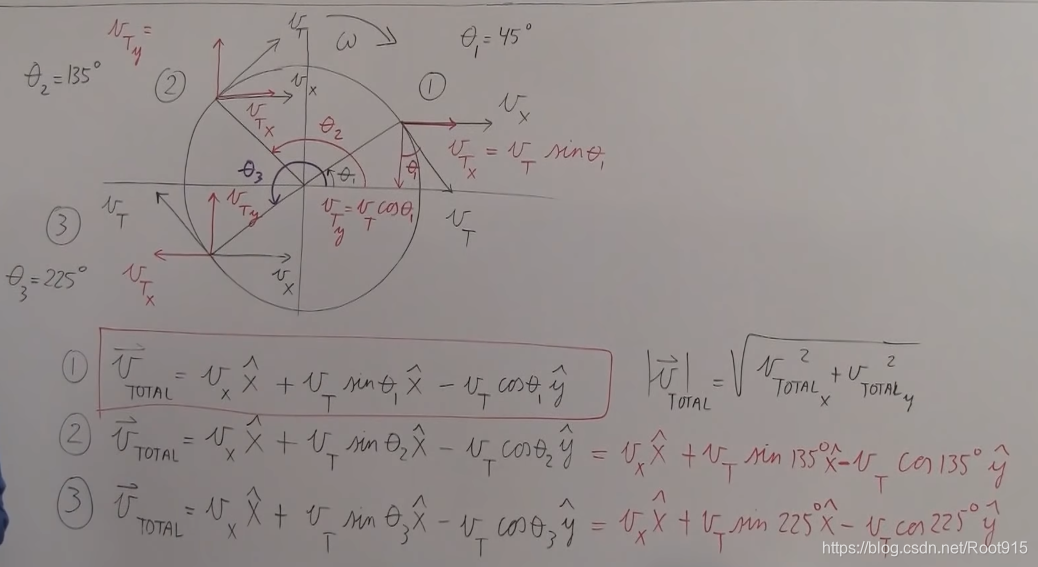 v_{T_y} =
v_T
ω
θ₁ = 45°
θ₂ = 135°
②
v_x
①
v_x
v_{T_x}
θ₂
v_{T_x} = v_T sinθ₁
θ₃
θ₁
θ₁
v_T
v_{T_y}
v_{T_y} = v_T cosθ₁
v_T
③
θ₃ = 225°
v_{T_x}
v_x
① \vec{v}_{TOTAL} = v_x \hat{x} + v_T sinθ₁ \hat{x} − v_T cosθ₁ \hat{y}
|\vec{v}|_{TOTAL} = \sqrt{v_{TOTAL_x}^2 + v_{TOTAL_y}^2}
② \vec{v}_{TOTAL} = v_x \hat{x} + v_T sinθ₂ \hat{x} − v_T cosθ₂ \hat{y} = v_x \hat{x} + v_T sin 135° \hat{x} − v_T cos 135° \hat{y}
③ \vec{v}_{TOTAL} = v_x \hat{x} + v_T sinθ₃ \hat{x} − v_T cosθ₃ \hat{y} = v_x \hat{x} + v_T sin 225° \hat{x} − v_T cos 225° \hat{y}
https://blog.csdn.net/Root915